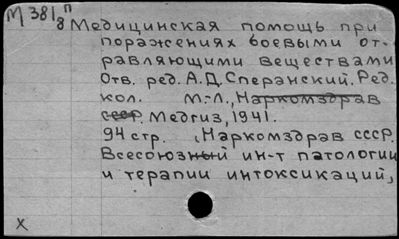 М 381 п
8
Медицинская помощь при
поражениях боевыми от-
равляющими веществами
Отв. ред. А.Д.Сперанский. Ред.
кол. М.-Л., Наркомздрав
СССР. Медгиз, 1941.
94 стр. (Наркомздрав СССР.
Всесоюзный ин-т патологии
и терапии интоксикаций)
х